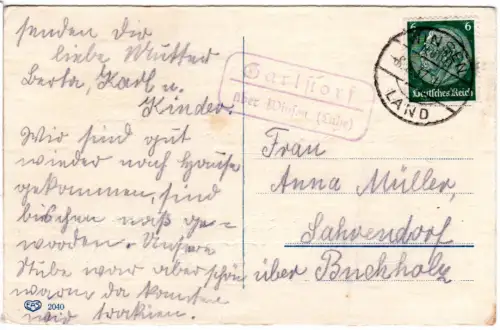 senden dir
liebe Mutter
Berta, Karl u.
Kinder.
Wir sind gut
wieder nach Hause
gekommen, sind
bischen naß ge-
worden. Unsere
Stube war aber schön
warm da konnten
wir
EAS 2040
Garlstorf
über Winsen (Luhe)
6
Deutsches Reich
WINSEN
LAND
Frau
Anna Müller,
Sahrendorf
über Buchholz